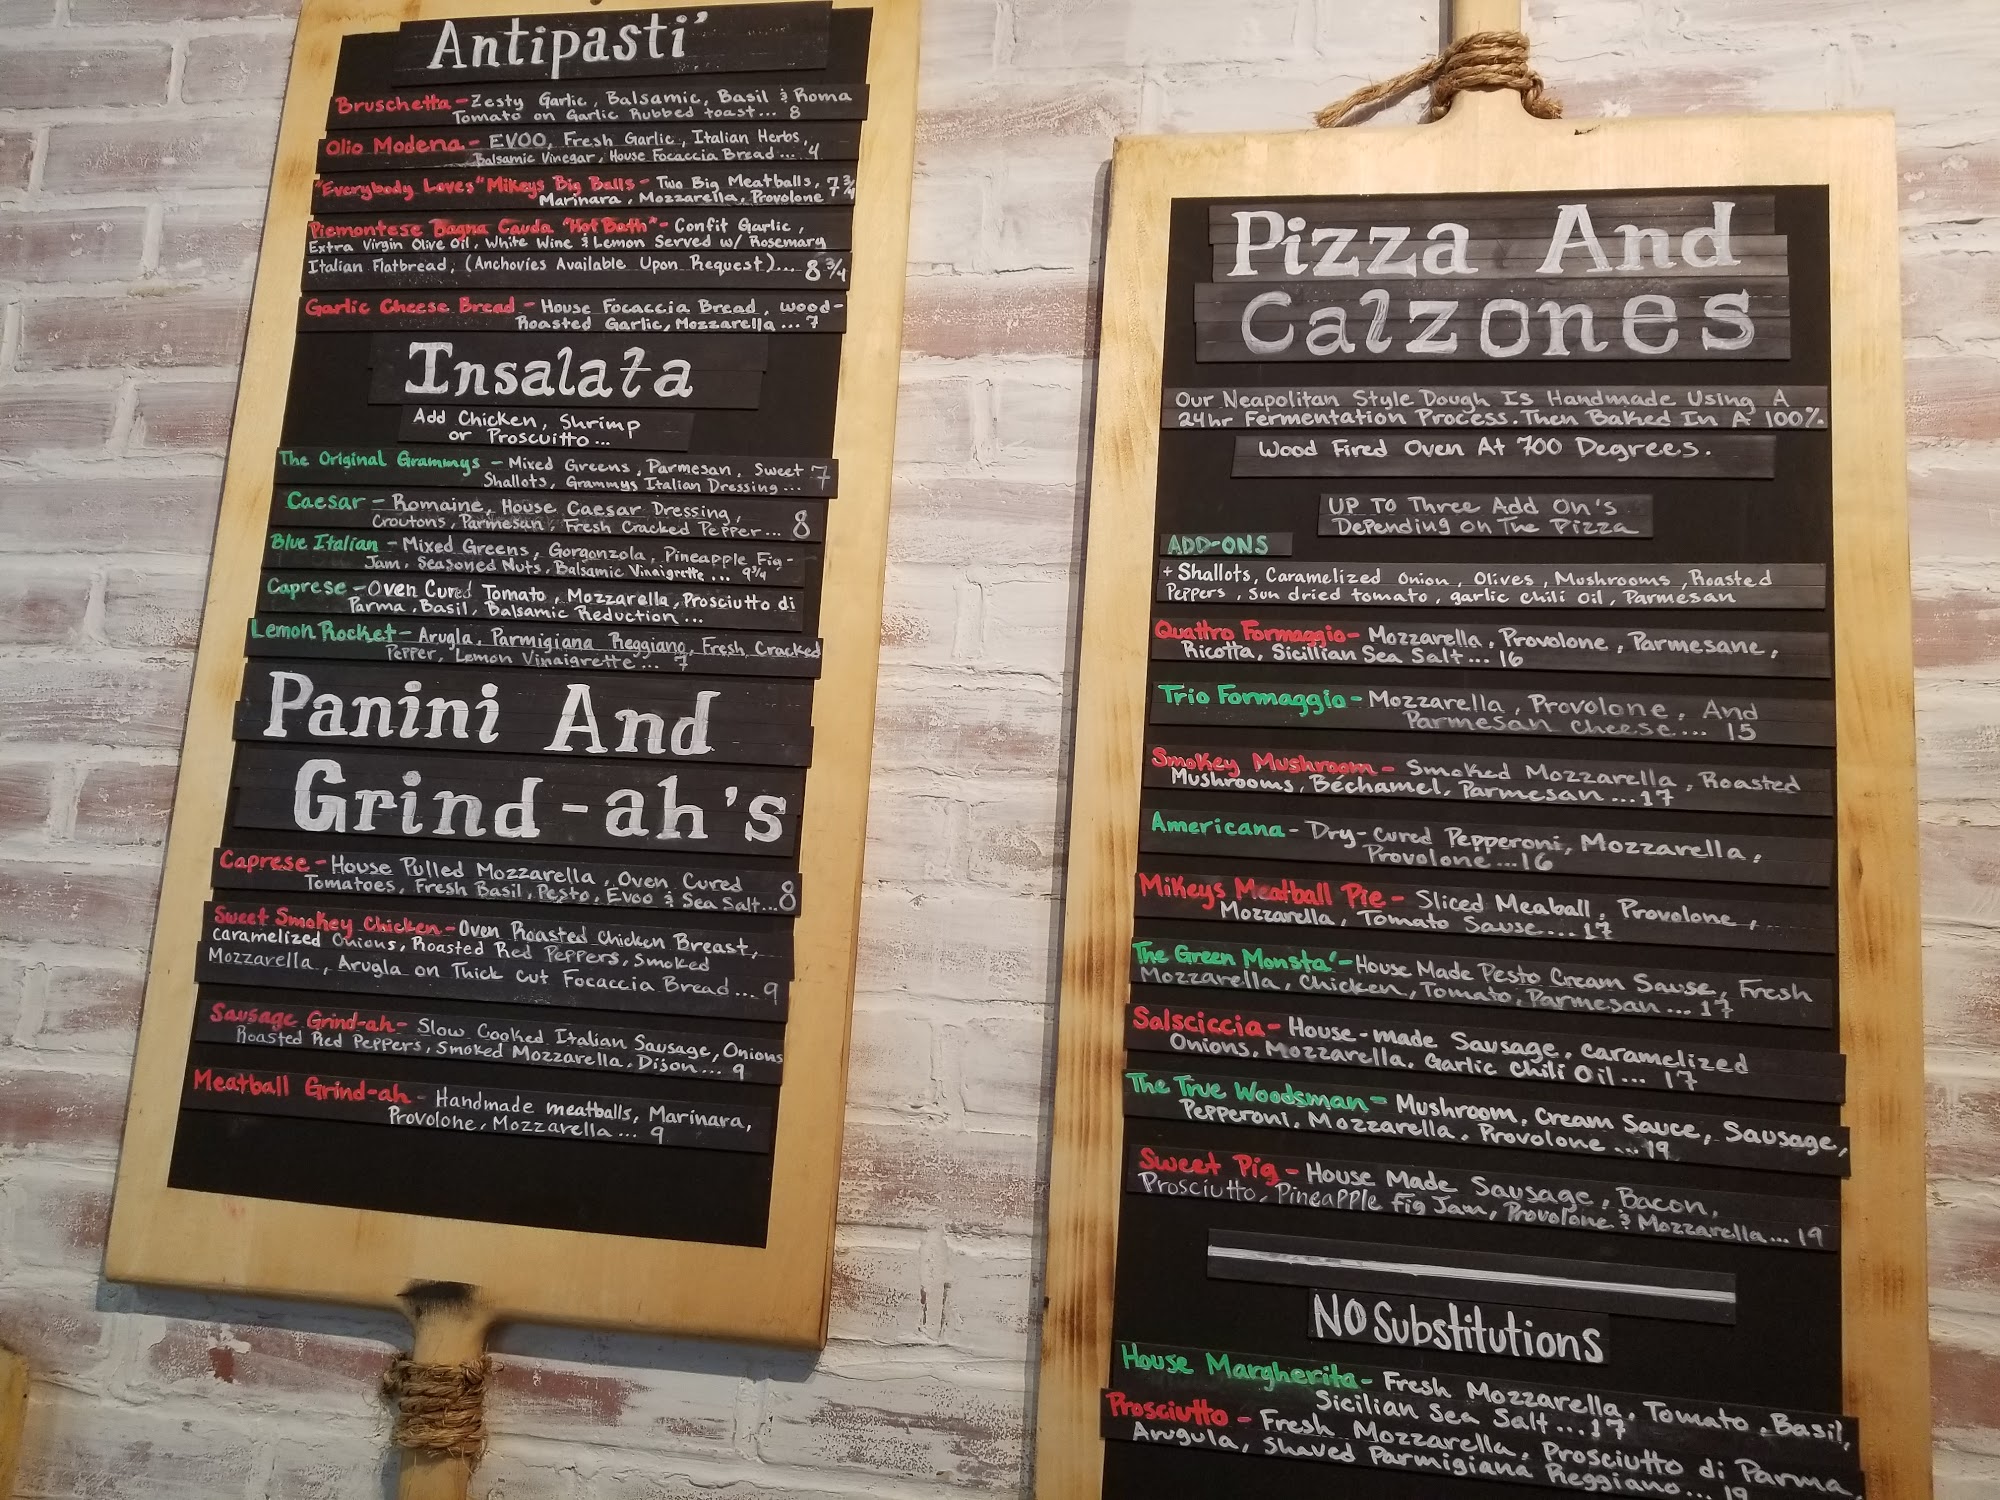 Antipasti'
Bruschetta - Zesty Garlic, Balsamic, Basil & Roma
Tomato on Garlic Rubbed toast... 8
Olio Modena - EVOO, Fresh Garlic, Italian Herbs,
Balsamic Vinegar, House Focaccia Bread... 4
"Everybody Loves" Mikeys Big Balls - Two Big Meatballs, 7 3/4
Marinara, Mozzarella, Provolone
Piemontese Bagna Cauda "Hot Bath" - Confit Garlic,
Extra Virgin Olive Oil, White Wine & Lemon Served w/ Rosemary
Italian Flatbread, (Anchovies Available Upon Request)... 8 3/4
Garlic Cheese Bread - House Focaccia Bread, wood-
Roasted Garlic, Mozzarella... 7
Insalata
Add Chicken, Shrimp
or Proscuitto...
The Original Grammys - Mixed Greens, Parmesan, Sweet 7
Shallots, Grammys Italian Dressing...
Caesar - Romaine, House Caesar Dressing,
Croutons, Parmesan, Fresh Cracked Pepper... 8
Blue Italian - Mixed Greens, Gorgonzola, Pineapple Fig-
Jam, Seasoned Nuts, Balsamic Vinaigrette... 9 3/4
Caprese - Oven Cured Tomato, Mozzarella, Prosciutto di
Parma, Basil, Balsamic Reduction...
Lemon Rocket - Arugla, Parmigiana Reggiano, Fresh Cracked
Pepper, Lemon Vinaigrette... 7
Panini And
Grind-ah's
Caprese - House Pulled Mozzarella, Oven Cured
Tomatoes, Fresh Basil, Pesto, Evoo & Sea Salt... 8
Sweet Smokey Chicken - Oven Roasted Chicken Breast,
caramelized Onions, Roasted Red Peppers, Smoked
Mozzarella, Arugla on Thick cut Focaccia Bread... 9
Sausage Grind-ah - Slow Cooked Italian Sausage, Onions
Roasted Red Peppers, Smoked Mozzarella, Dijon... 9
Meatball Grind-ah - Handmade meatballs, Marinara,
Provolone, Mozzarella... 9
Pizza And
Calzones
Our Neapolitan Style Dough Is Handmade Using A
24hr Fermentation Process. Then Baked In A 100%
Wood Fired Oven At 700 Degrees.
UP To Three Add On's
Depending on The Pizza
ADD-ONS
+ Shallots, Caramelized Onion, Olives, Mushrooms, Roasted
Peppers, Sun dried tomato, garlic chili Oil, Parmesan
Quattro Formaggio - Mozzarella, Provolone, Parmesane,
Ricotta, Sicillian Sea Salt... 16
Trio Formaggio - Mozzarella, Provolone, And
Parmesan Cheese.... 15
Smokey Mushroom - Smoked Mozzarella, Roasted
Mushrooms, Béchamel, Parmesan...17
Americana - Dry-Cured Pepperoni, Mozzarella,
Provolone...16
Mikeys Meatball Pie - Sliced Meaball, Provolone,
Mozzarella, Tomato Sause....17
The Green Monsta' - House Made Pesto Cream Sause, Fresh
Mozzarella, Chicken, Tomato, Parmesan... 17
Salsciccia - House-made Sausage, caramelized
Onions, Mozzarella, Garlic Chili Oil... 17
The True Woodsman - Mushroom, Cream Sauce, Sausage,
Pepperoni, Mozzarella, Provolone...19
Sweet Pig - House Made Sausage, Bacon,
Prosciutto, Pineapple Fig Jam, Provolone & Mozzarella... 19
No Substitutions
House Margherita - Fresh Mozzarella, Tomato, Basil,
Sicilian Sea Salt...17
Prosciutto - Fresh Mozzarella, Prosciutto di Parma,
Arugula, Shaved Parmigiana Reggiano... 19